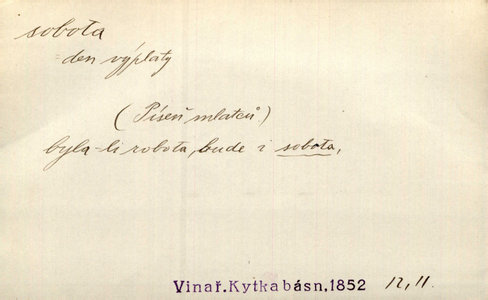 sobota
= den výplaty
(Píseň mlatců)
byla-li robota, bude i sobota,
Vinař. Kytka básn, 1852 12, 11.